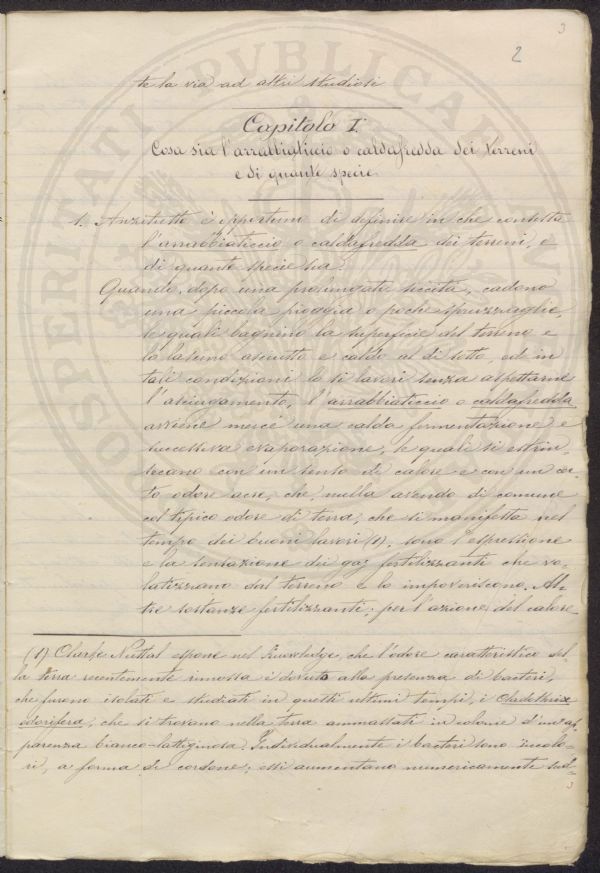 3
2
te la via ad altri studiosi
Capitolo I.
Cosa sia l'arrabbigliccio o caldafredda dei terreni
e di quante specie.
1. Anzitutto è opportuno di definire in che consista
l'arrabbiaticcio o caldafredda dei terreni, e
di quante specie sia.
Quando, dopo una prolungata siccità, cadono
una piccola pioggia o poche spruzzaglie,
le quali bagnino la superficie del terreno e
lo lascino asciutto e caldo al di sotto, ed in
tali condizioni lo si lavori senza aspettarne
l'asciugamento, l'arrabbiaticcio o caldafredda
avviene mercè una calda fermentazione e
successiva evaporazione, le quali si estrin-
secano con un senso di calore e con un cer-
to odore acre, che, nulla avendo di comune
col tipico odore di terra, che si manifesta nel
tempo dei buoni lavori (1), sono l'espressione
e la sensazione dei gaz fertilizzanti che vo-
latizzano dal terreno e lo impoveriscono. Al-
tre sostanze fertilizzanti, per l'azione del calore
(1) Clarke Nuttal espone nel Knowledge, che l'odore caratteristico del-
la terra recentemente smossa è dovuto alla presenza di bacteri,
che furono isolati e studiati in questi ultimi tempi, i Cladothrix
odorifera, che si trovano nella terra ammassati in colonie d'un'ap-
parenza bianco-lattiginosa. Individualmente i bacteri sono incolo-
ri, a forma di cordone; essi aumentano numericamente sud-
3
PROSPERITATI PVBLICAE